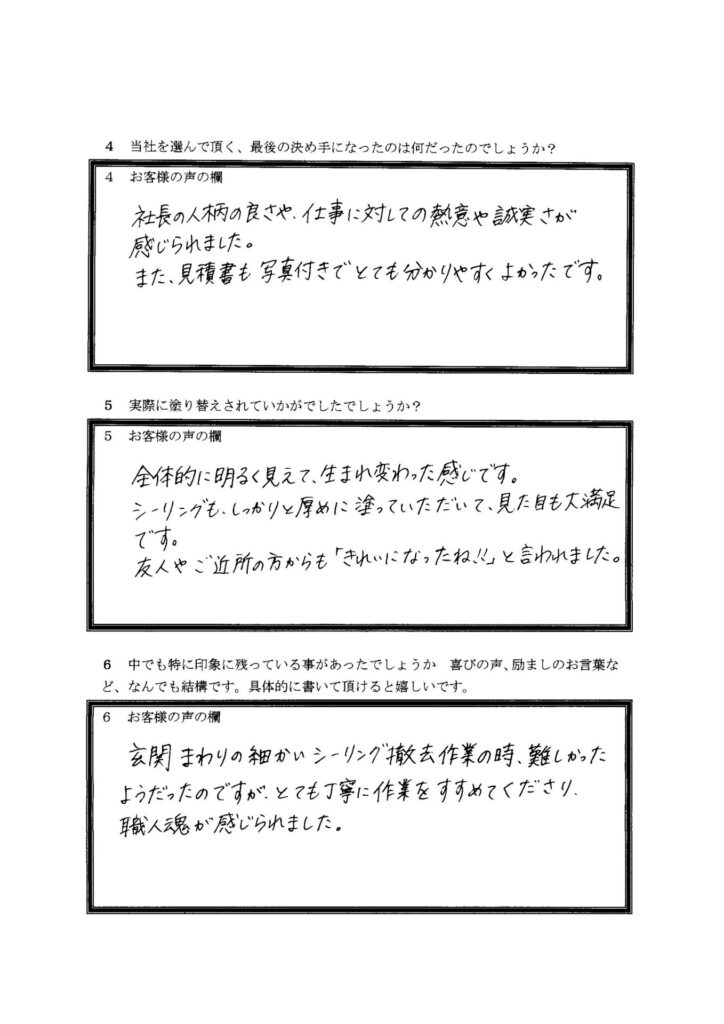 4 当社を選んで頂く、最後の決め手になったのは何だったのでしょうか？
4 お客様の声の欄
社長の人柄の良さや、仕事に対しての熱意や誠実さが
感じられました。
また、見積書も写真付きでとても分かりやすくよかったです。
5 実際に塗り替えされていかがでしたでしょうか？
5 お客様の声の欄
全体的に明るく見えて、生まれ変わった感じです。
シーリングも、しっかりと厚めに塗っていただいて、見た目も大満足
です。
友人やご近所の方からも「きれいになったね!!」と言われました。
6 中でも特に印象に残っている事があったでしょうか 喜びの声、励ましのお言葉な
ど、なんでも結構です。具体的に書いて頂けると嬉しいです。
6 お客様の声の欄
玄関まわりの細かいシーリング撤去作業の時、難しかった
ようだったのですが、とても丁寧に作業をすすめてくださり、
職人魂が感じられました。